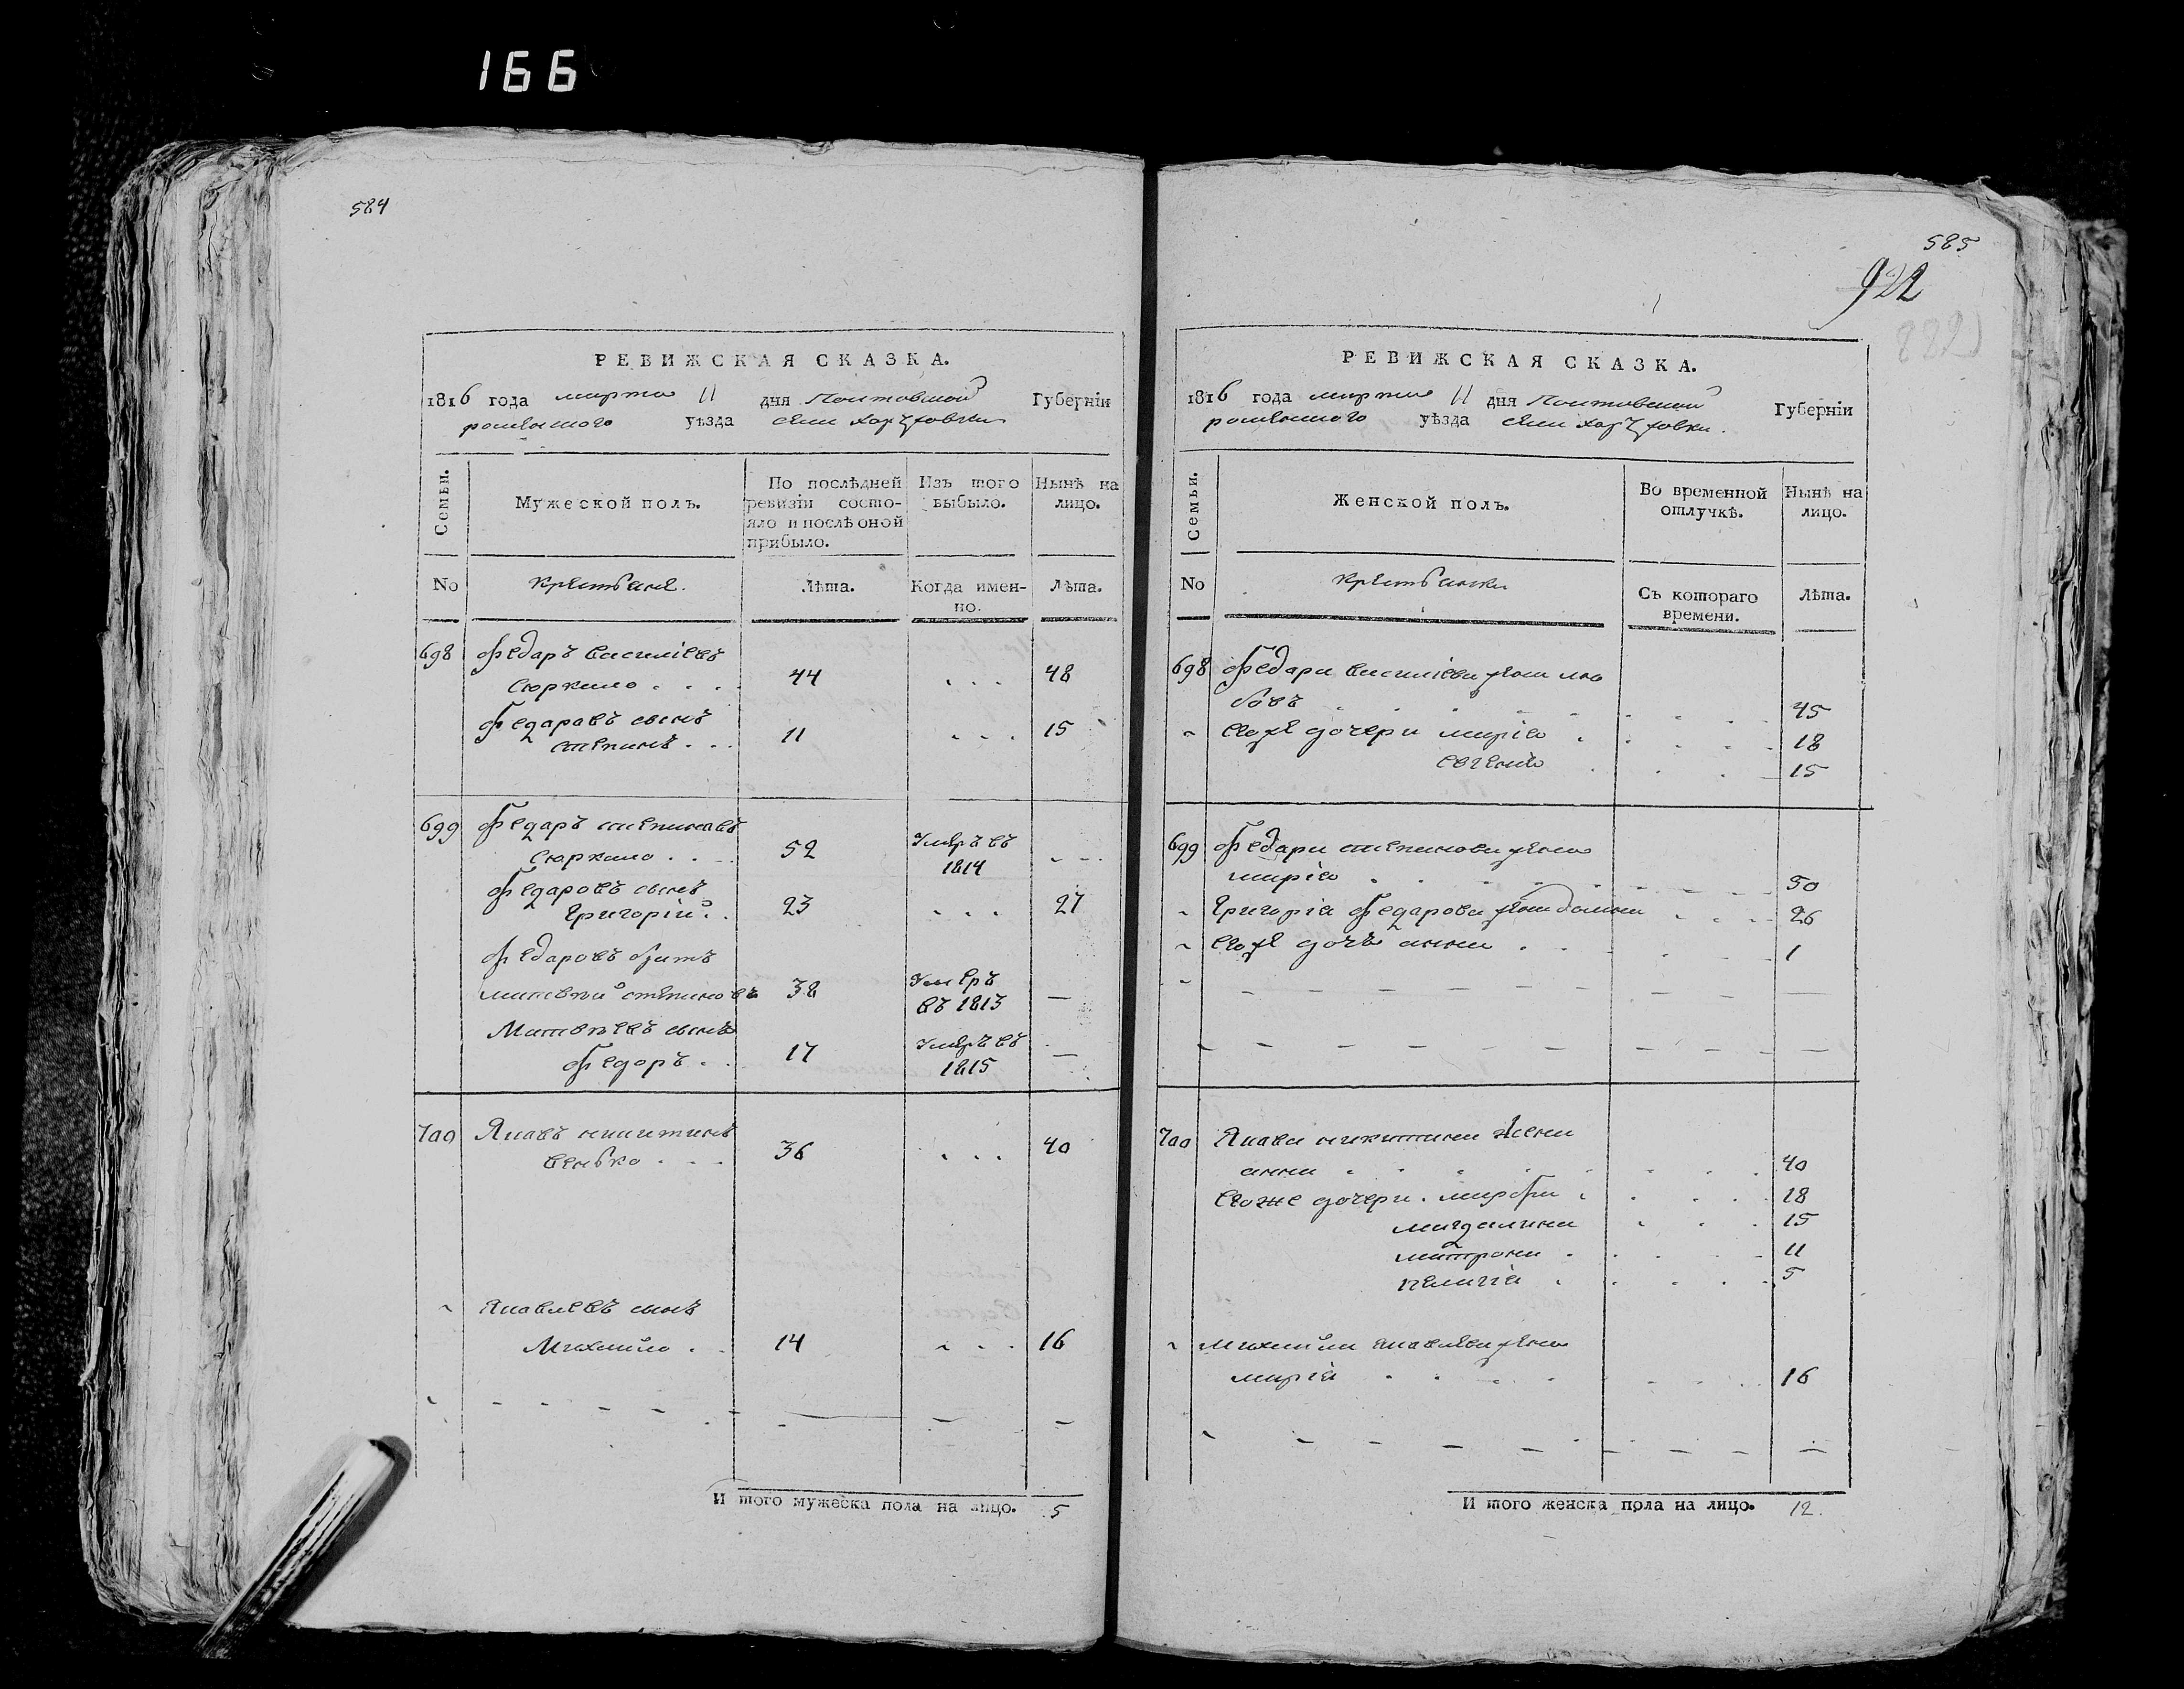 166
584
РЕВИЖСКАЯ СКАЗКА.
1816 года марта 11 дня Полтавской Губерніи
роменского уѣзда села
Семьи.
Мужеской полъ.
По послѣдней ревизіи состояло и послѣ оной прибыло.
Изъ того выбыло.
Нынѣ на лицо.
No
крестьяне.
Лѣта.
Когда именно.
Лѣта.
698 федаръ василіевъ
44 . . . 48
федаровъ сынъ
степанъ . . . 11 . . . 15
699 федаръ степановъ
52 Умеръ въ 1814
федаровъ сынъ
григорій . . 23 . . . 27
федаровъ братъ
матвѣй степановъ 38 Умеръ въ 1813 —
Матвѣевъ сынъ
федоръ . . 17 Умеръ въ 1815 —
700 Яковъ никитинъ
36 . . . 40
Яковлевъ сынъ
Михайло . . 14 . . . 16
И того мужеска пола на лицо. 5
585
922
РЕВИЖСКАЯ СКАЗКА.
1816 года марта 11 дня Полтавской Губерніи
роменского уѣзда села
Семьи.
Женской полъ.
Во временной отлучкѣ.
Нынѣ на лицо.
No
крестьянки
Съ котораго времени.
Лѣта.
698 федара василіева жена любовъ 45
егоже дочери марія 18
евгенія 15
699 федара степанова жена
марія 50
григорія федарова жена домна 26
егоже дочь анна 1
700 Якова никитина жена
анна 40
егоже дочери . марфа 18
магдалина 15
матрона 11
пелагія 5
михайла яковлева жена
марія 16
И того женска пола на лицо. 12.